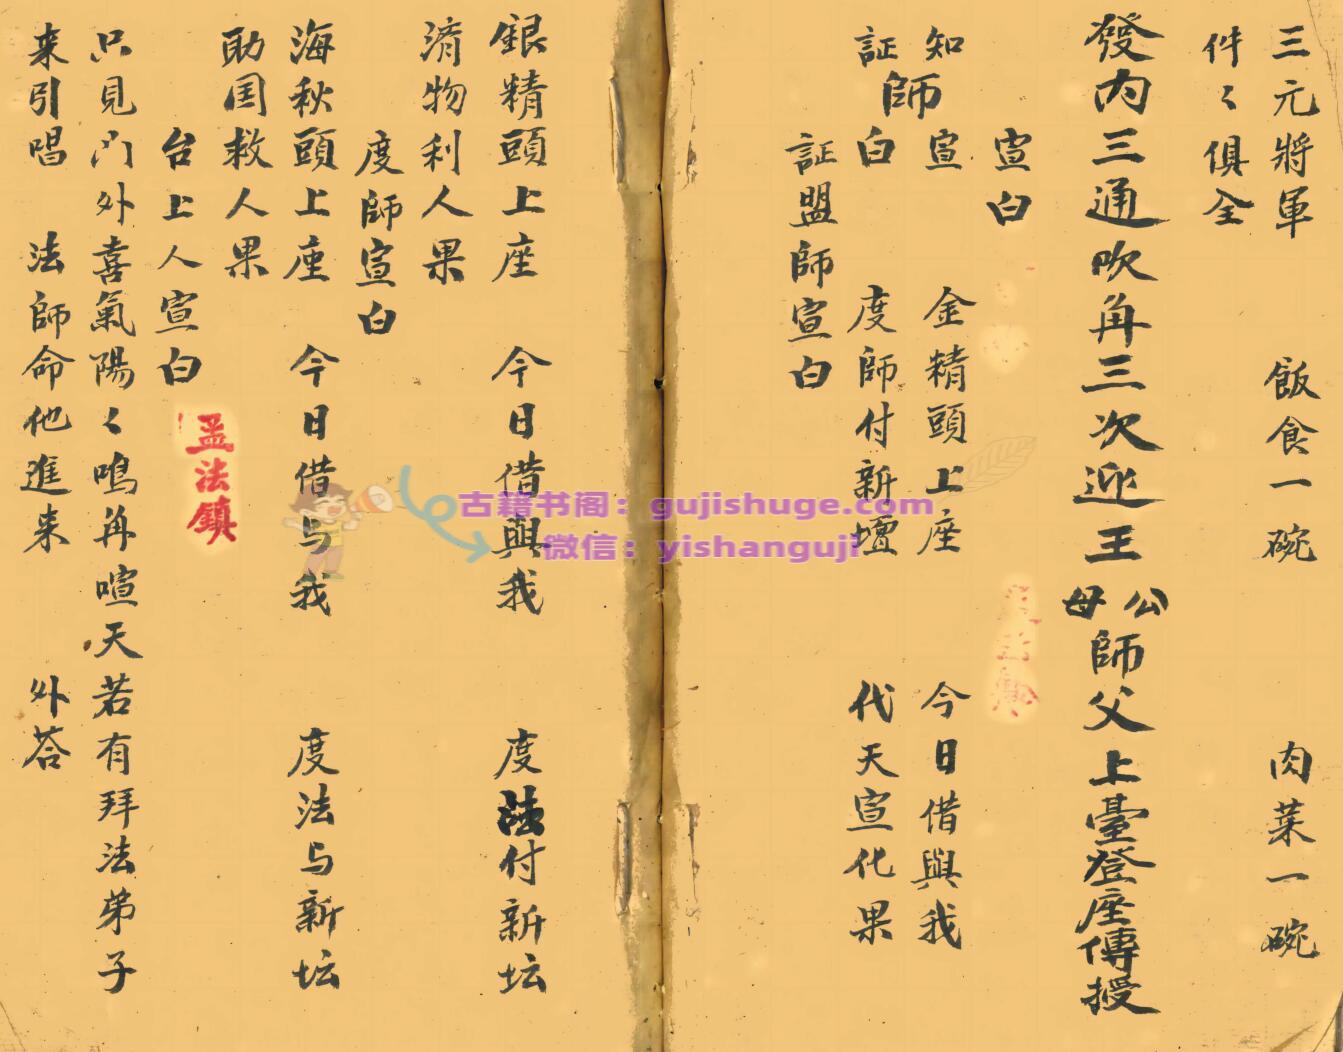 三元將軍　飯食一碗　肉菜一碗
件〻俱全
發內三通吹角三次迎王公母師父上臺登座傳授
宣白
知証師宣白　金精頭上座　今日借與我
度師付新壇　代天宣化果
証盟師宣白
銀精頭上座　今日借與我　度法付新坛
濟物利人果
度師宣白
海秋頭上座　今日借与我　度法与新坛
助国救人果
台上人宣白
孟法鎮
只見门外喜氣陽〻鳴角喧天若有拜法弟子
来引唱　法師命他進来　外荅
古籍书阁：gujishuge.com
微信：yishanguji